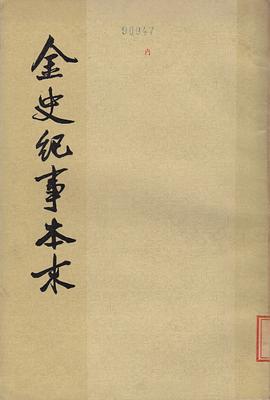 90947
内
金史紀事本末